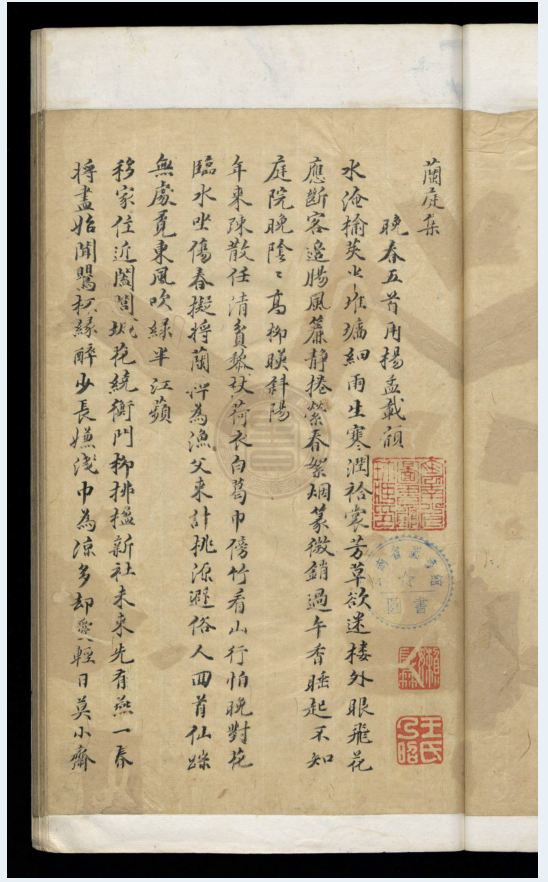 蘭庭集
晚春五首用楊孟載韻
水淹榆莢出堆墻細雨生寒潤袷裳芳草欲迷樓外眼飛花
應斷客邊腸風簾靜捲縈春絮烟篆微銷過午香睡起不知
庭院晚陰〻高柳暎斜陽
年來踈散任清貧藜杖荷衣白葛巾傍竹看山行怕晚對花
臨水坐傷春擬將蘭 為漁父来計桃源避俗人回首仙蹤
無處覓東風吹綠半江蘋
移家住近闔閭城花繞衡門柳拂楹新社未来先有燕一春
將盡始聞鶯 緣醉少長嫌淺巾為凉多却愛輕日莫小齋
圖書
王氏
乃昭